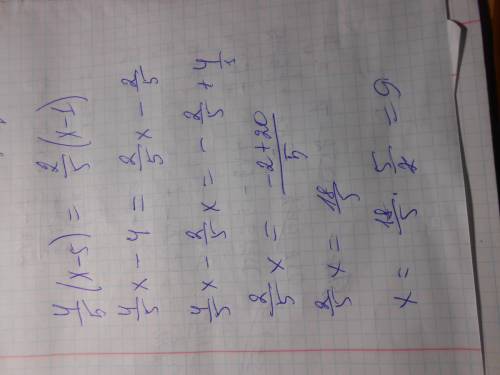 4/5 (x-5) = 2/5 (x-1)
4/5 x - 4 = 2/5 x - 2/5
4/5 x - 2/5 x = - 2/5 + 4/1
2/5 x = -2+20/5
2/5 x = 18/5
x = 18/5 · 5/2 = 9